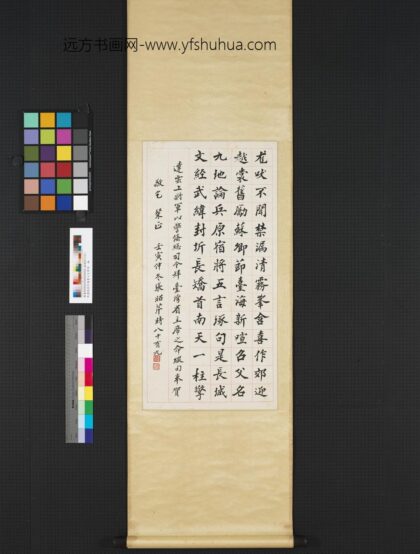 远方书画网-www.yfshuhua.com
尨吠不聞禁漏清霧峯含喜作郊迎
越裳舊勵蘇卿節臺海新喧召父名
九地論兵原宿將五言琢句是長城
文經武緯封圻長矯首南天一柱擎
達雲上將軍以警備總司令拜臺灣省主席之命綴句奉賀
敬乞 棨正 壬寅仲冬張昭芹時八十有九